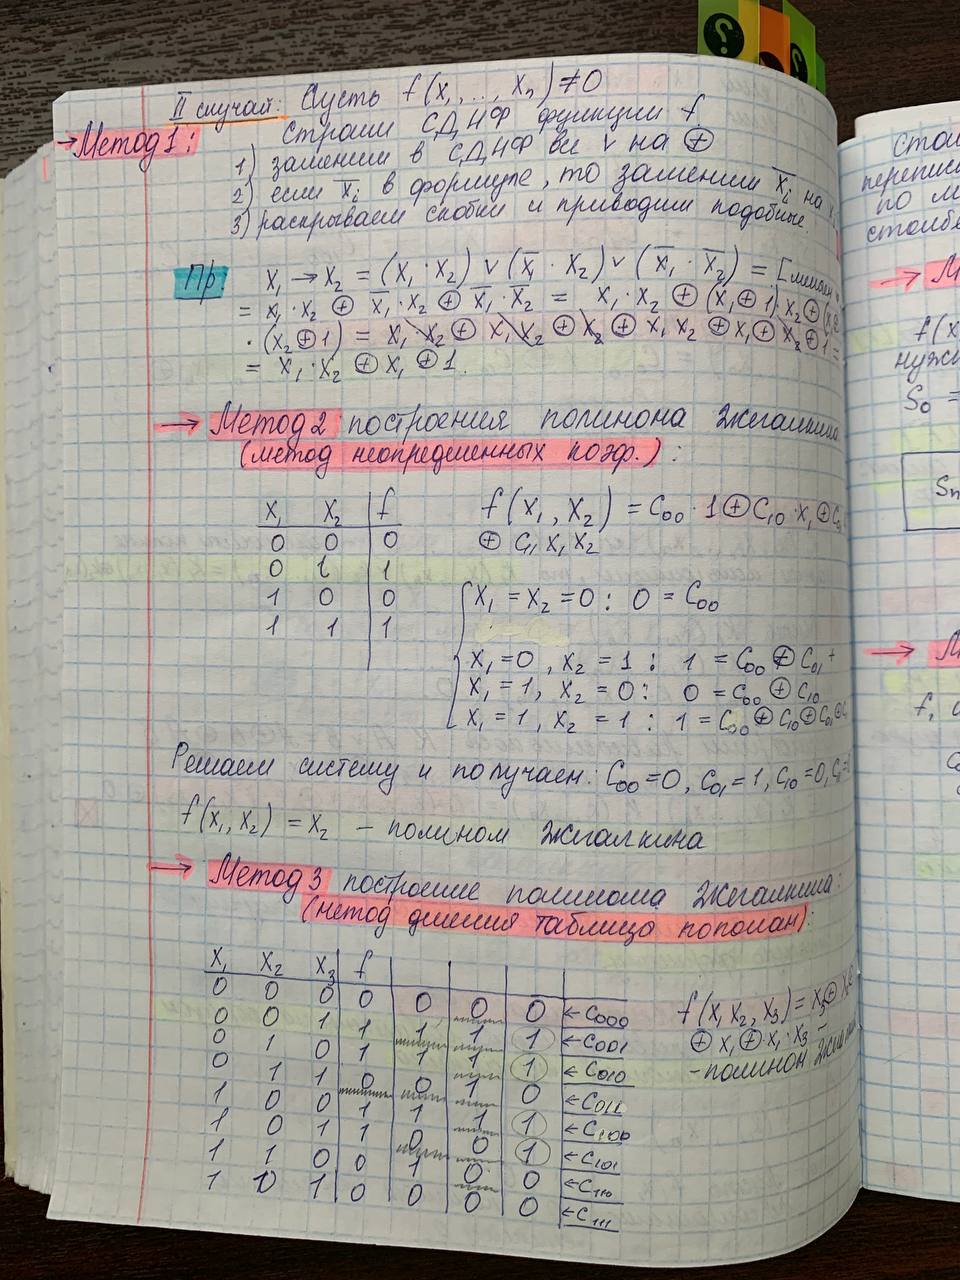 II случай: Пусть f(x₁, ..., xₙ) ≠ 0
→ Метод 1: Строим СДНФ функции f.
1) заменим в СДНФ все ∨ на ⊕
2) если x̅ᵢ в формуле, то заменим x̅ᵢ на x
3) раскрываем скобки и приводим подобные.
Пр. x₁ → x₂ = (x₁ · x₂) ∨ (x̅₁ · x₂) ∨ (x̅₁ · x̅₂) = [меняем
= x₁ · x₂ ⊕ x̅₁ · x₂ ⊕ x̅₁ · x̅₂ = x₁ · x₂ ⊕ (x₁ ⊕ 1) · x₂ ⊕ (x₁ ⊕
· (x₂ ⊕ 1) = x₁ x₂ ⊕ x₁ x₂ ⊕ x₂ ⊕ x₁ x₂ ⊕ x₁ ⊕ x₂ ⊕ 1 =
= x₁ · x₂ ⊕ x₁ ⊕ 1.
→ Метод 2 построения полинома Жегалкина
(метод неопределенных коэф.):
x₁ x₂ f
0 0 0
0 1 1
1 0 0
1 1 1
f(x₁, x₂) = C₀₀ · 1 ⊕ C₁₀ · x₁ ⊕ C₀
⊕ C₁₁ x₁ x₂
x₁ = x₂ = 0 : 0 = C₀₀
x₁ = 0, x₂ = 1 : 1 = C₀₀ ⊕ C₀₁
x₁ = 1, x₂ = 0 : 0 = C₀₀ ⊕ C₁₀
x₁ = 1, x₂ = 1 : 1 = C₀₀ ⊕ C₁₀ ⊕ C₀₁ ⊕ C
Решаем систему и получаем: C₀₀ = 0, C₀₁ = 1, C₁₀ = 0, C₁₁ =
f(x₁, x₂) = x₂ – полином Жегалкина
→ Метод 3 построение полинома Жегалкина:
(метод деления таблицы пополам):
x₁ x₂ x₃ f
0 0 0 0 0 0 0 ← C₀₀₀
0 0 1 1 1 1 1 ← C₀₀₁
0 1 0 1 1 1 1 ← C₀₁₀
0 1 1 0 0 1 0 ← C₀₁₁
1 0 0 1 1 1 1 ← C₁₀₀
1 0 1 1 0 0 1 ← C₁₀₁
1 1 0 0 1 0 0 ← C₁₁₀
1 1 1 0 0 0 0 ← C₁₁₁
f(x₁ x₂, x₃) = x₃ ⊕ x₂ ⊕
⊕ x₁ ⊕ x₁ · x₃
– полином Жегалк
стол
переписы
по м
столбе
→ М
f(x
нужн
S₀ =
Sₙ
→ М
f,